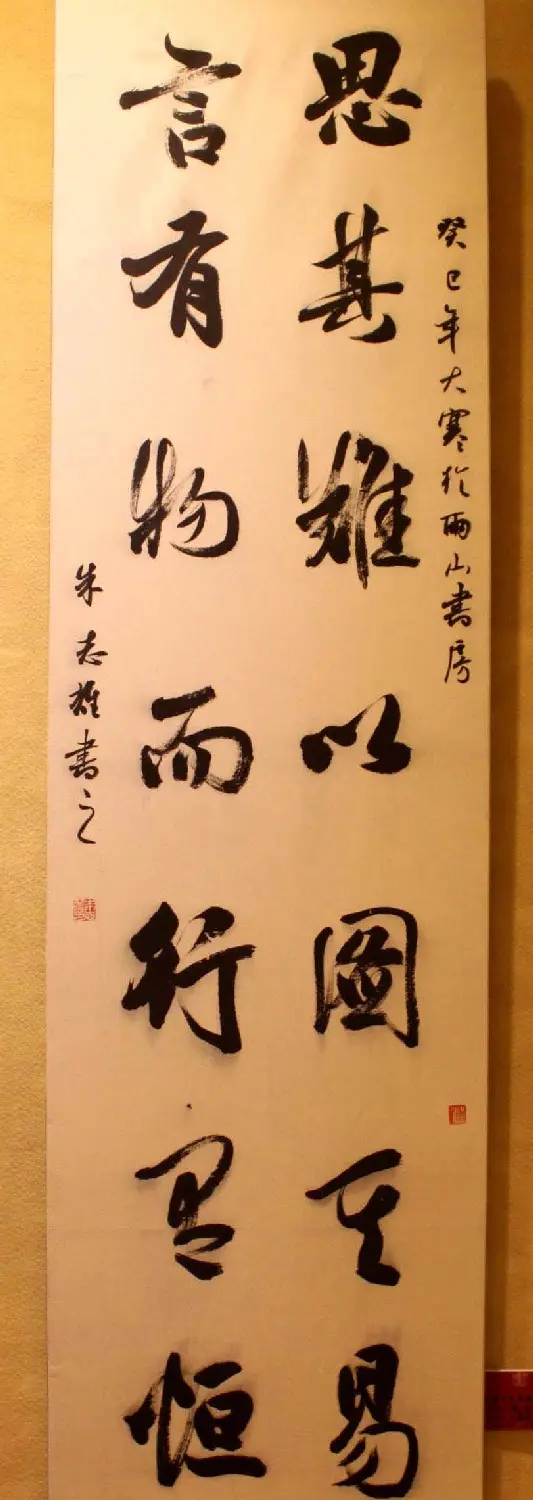 癸巳年大寒於雨山書房
思其難以圖其易
言有物而行有恒
朱志雄書之